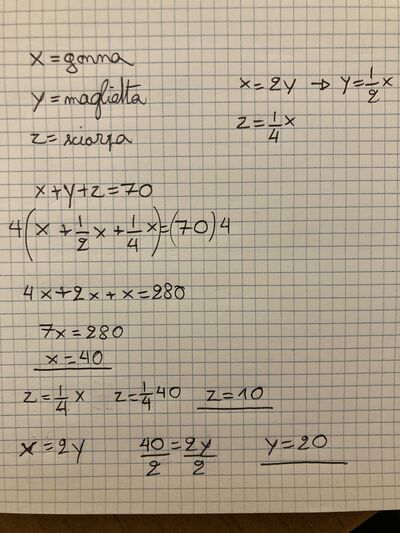 x = gonna
y = maglietta
x = 2y → y = 1/2 x
z = sciarpa
z = 1/4 x
x + y + z = 70
4(x + 1/2 x + 1/4 x) = (70)4
4x + 2x + x = 280
7x = 280
x = 40
z = 1/4 x z = 1/4 40 z = 10
x = 2y 40/2 = 2y/2 y = 20